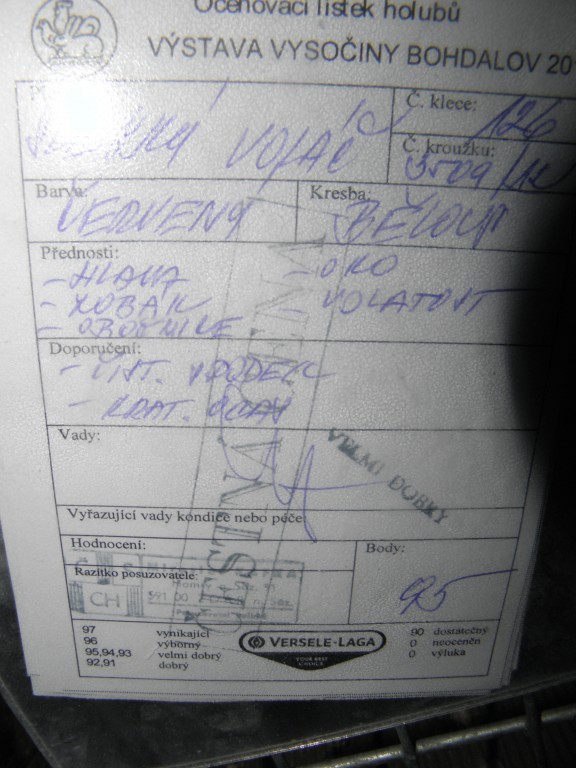 Oceňovací lístek holubů
VÝSTAVA VYSOČINY BOHDALOV 20
VOLÁČ
Č. klece: 126
Č. kroužku:
Barva:
ČERVENÝ
Kresba:
BĚLOUŠ
Přednosti:
- HLAVA - OKO
- ZOBÁK VOLATOST
- OBOČNICE
Doporučení:
- ČIST. SPODEK
- KRAT. OCAS
Vady:
VELMI DOBRÝ
ČESTNÁ CENA
Vyřazující vady kondice nebo péče:
Hodnocení:
Body:
95
Razítko posuzovatele:
CH
591 00
97 vynikající
96 výborný
95,94,93 velmi dobrý
92,91 dobrý
VERSELE-LAGA
YOUR BEST
CHOICE
90 dostatečný
0 neoceněn
0 výluka